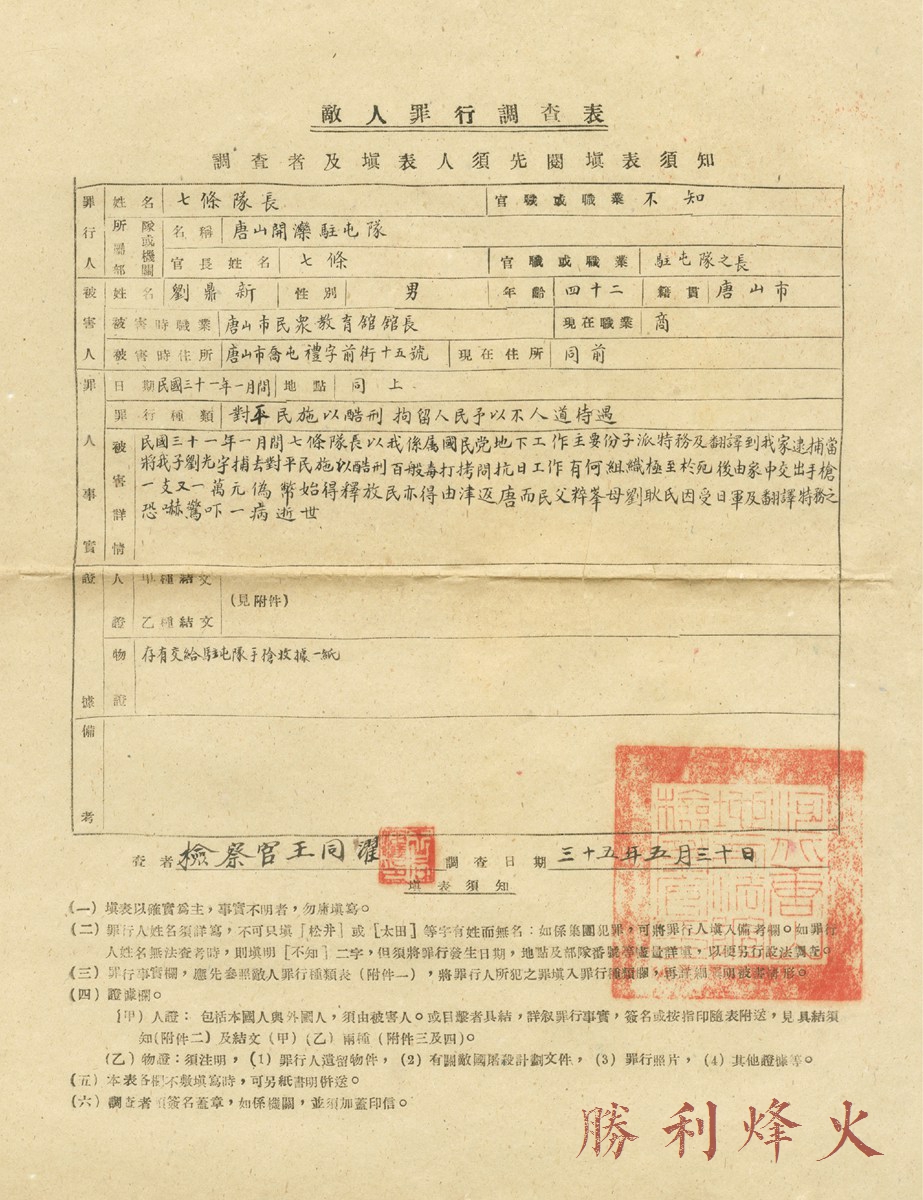 敵人罪行調查表
調查者及塡表人須先閱塡表須知
罪行人 姓名 七條隊長 官職或職業 不知
所屬部隊或機關 名稱 唐山開灤駐屯隊
官長姓名 七條 官職或職業 駐屯隊之長
被害人 姓名 劉鼎新 性別 男 年齡 四十二 籍貫 唐山市
被害時職業 唐山市民衆教育舘舘長 現在職業 商
被害時住所 唐山市喬屯禮字前街十五號 現在住所 同前
罪人事實 日期 民國三十一年一月間 地點 同上
罪行種類 對平民施以酷刑 拘留人民予以不人道待遇
被害詳情 民國三十一年一月間七條隊長以我係属國民党地下工作主要份子派特務及翻譯到我家逮捕當
將我子劉光宇捕去對平民施以酷刑百般毒打拷問抗日工作有何組織極至於死後由家中交出手槍
一支又一萬元偽幣始得釋放民亦得由津返唐而民父粹峯母劉耿氏因受日軍及翻譯特務之
恐嚇驚吓一病逝世
證據 人證 甲種結文
(見附件)
乙種結文
物證 存有交給駐屯隊手搶收據一紙
備考
查者 檢察官王同濯 調查日期 三十五年五月三十日
塡表須知
(一)塡表以確實爲主，事實不明者，勿庸塡寫。
(二)罪行人姓名須詳寫，不可只塡[松井]或[太田]等字有姓而無名：如係集團犯罪，可將罪行人塡入備考欄。如罪行
人姓名無法查考時，則塡明[不知]二字，但須將罪行發生日期，地點及部隊番號等盡量詳載，以便另行設法調查。
(三)罪行事實欄，應先參照敵人罪行種類表(附件一)，將罪行人所犯之罪塡入罪行種類欄，再詳細塡明被害情形。
(四)證據欄。
(甲)人證：包括本國人與外國人，須由被害人。或目擊者具結，詳叙罪行事實，簽名或按指印隨表附送，見具結須
知(附件二)及結文(甲)(乙)兩種(附件三及四)。
(乙)物證：須注明，(1)罪行人遺留物件，(2)有關敵國屠殺計劃文件，(3)罪行照片，(4)其他證據等。
(五)本表各欄不敷塡寫時，可另紙書明併送。
(六)調查者須簽名蓋章，如係機關，並須加蓋印信。
勝利烽火